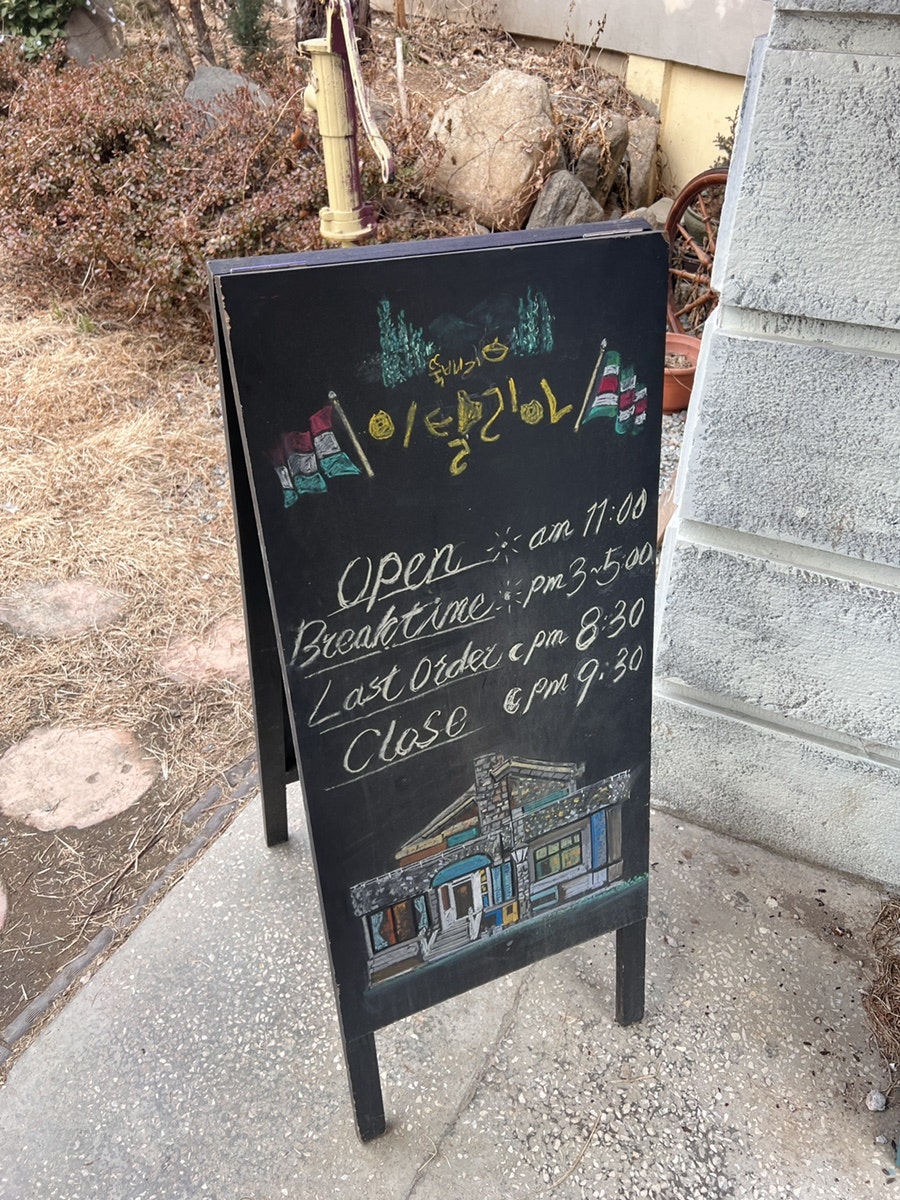 뚝배기
이딸리아
Open am 11:00
Breaktime pm 3~5:00
Last Order pm 8:30
Close pm 9:30